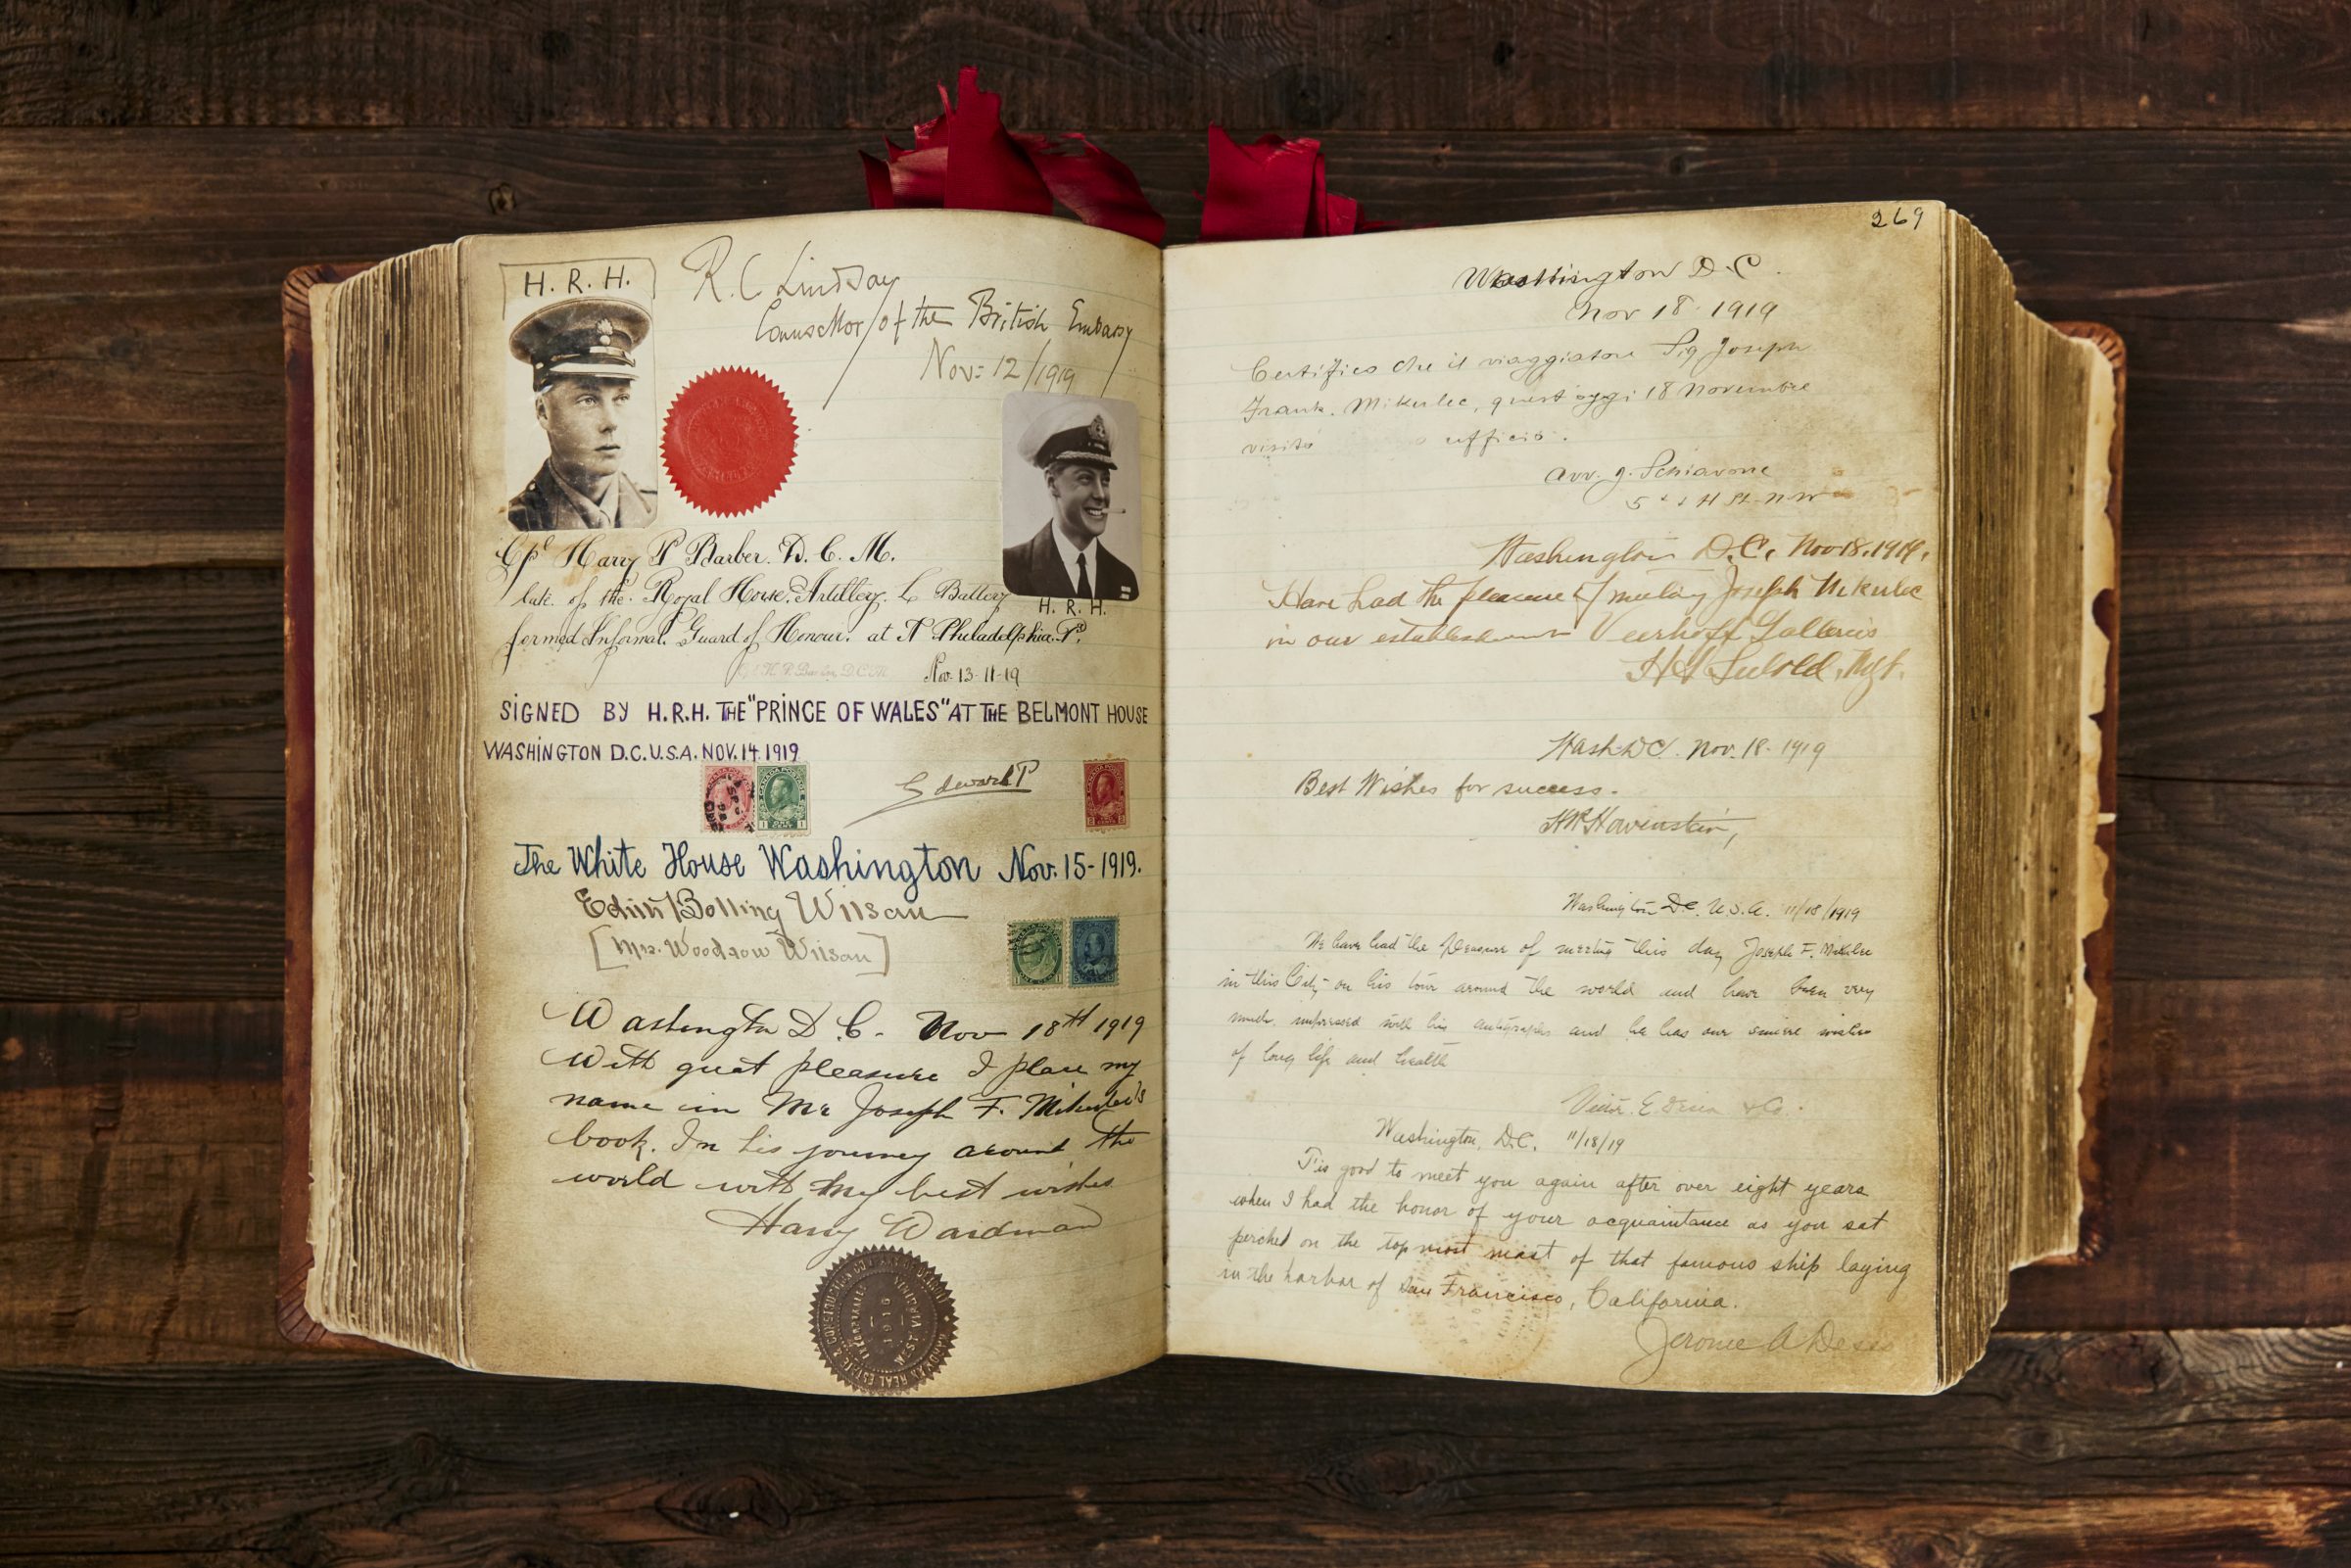 H. R. H.
R. C. Lindsay
Counsellor of the British Embassy
Nov: 12/1919
H. R. H.
Cpl Harry P Barber. D. C. M.
late. of the. Royal Horse. Artillery. L Battery
formed Informal. Guard of Honour. at N Philadelphia. Pa
Nov. 13-11-19
SIGNED BY H.R.H. THE "PRINCE OF WALES" AT THE BELMONT HOUSE
WASHINGTON D.C. U.S.A. NOV. 14. 1919
Edward P
The White House Washington Nov. 15-1919.
Edith Bolling Wilson
[Mrs. Woodrow Wilson]
Washington D. C. Nov 18th 1919
With great pleasure I place my
name in Mr Joseph F. Mikulec's
book. In his journey around the
world with my best wishes
Harry Wardman
CONSTRUCTION
REAL ESTATE
1916
WEST VIRGINIA
269
Washington D. C.
Nov 18. 1919
Certifico che il viaggiatore Sig Joseph
Frank. Mikulec, quest oggi 18 Novembre
visitò ufficio.
Avv. g. Schiavone
H St. N W
Washington D.C. Nov 18. 1919.
Have had the pleasure of meeting Joseph Mikulec
in our establishment Veerhoff Galleries
Mgr.
Wash. DC. Nov. 18. 1919
Best Wishes for success.
Washington D.C. U.S.A. 11/18/1919
We have had the pleasure of meeting this day Joseph F. Mikulec
in this City on his tour around the world and have been very
much impressed with his autographs and he has our sincere wishes
of long life and health
& Co.
Washington, D.C. 11/18/19
T'is good to meet you again after over eight years
when I had the honor of your acquaintance as you sat
perched on the topmost mast of that famous ship laying
in the harbor of San Francisco, California.
Jerome A